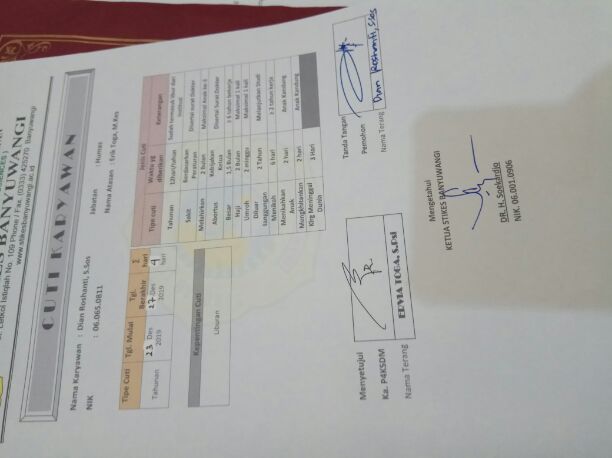 BANYUWANGI
Jl. Letkol Istiqlah No. 109 Phone / Fax. (0333) 425270 Banyuwangi
www.stikesbanyuwangi.ac.id
CUTI KARYAWAN
Nama Karyawan : Dian Roshanti, S.Sos
Jabatan : Humas
NIK : 06.065.0811
Nama Atasan : Erik Toga, M.Kes
Tipe Cuti Tgl. Mulai Tgl. Berakhir Σ hari
Tahunan 23 Des 2019 27 Des 2019 4 hari
Kepentingan Cuti
Liburan
Jenis Cuti
Tipe cuti Waktu yg diberikan Keterangan
Tahunan 12hari/tahun
Sakit Berdasarkan Peraturan Disertai surat Dokter
Melahirkan 2 Bulan Maksimal Anak ke-3
Abortus Kebijakan Ketua Disertai Surat Dokter
Besar 1,5 Bulan ≥ 6 tahun bekerja
Haji 2 Bulan Maksimal 1 kali
Umroh 2 minggu Maksimal 1 kali
Diluar tanggungan 2 Tahun Melanjutkan Studi
Menikah 6 hari ≥ 2 tahun kerja
Menikahkan Anak 2 hari Anak Kandung
Mengkhitankan 2 hari Anak Kandung
Klrg Meninggal Dunia 3 Hari
Menyetujui
Ka. P4KSDM
Nama Terang
ELVIA TOGA, S.Psi
Tanda Tangan
Pemohon
Nama Terang
Dian Roshanti, S.Sos
Mengetahui
KETUA STIKES BANYUWANGI
DR. H. Soekardjo
NIK. 06.001.0906